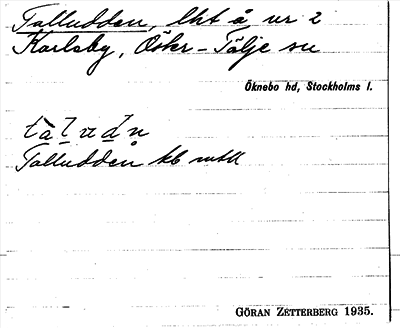 Talludden, lht å nr 2
Karleby, Öster-Tälje sn
Öknebo hd, Stockholms l.
Talludden kb mtll
GÖRAN ZETTERBERG 1935.